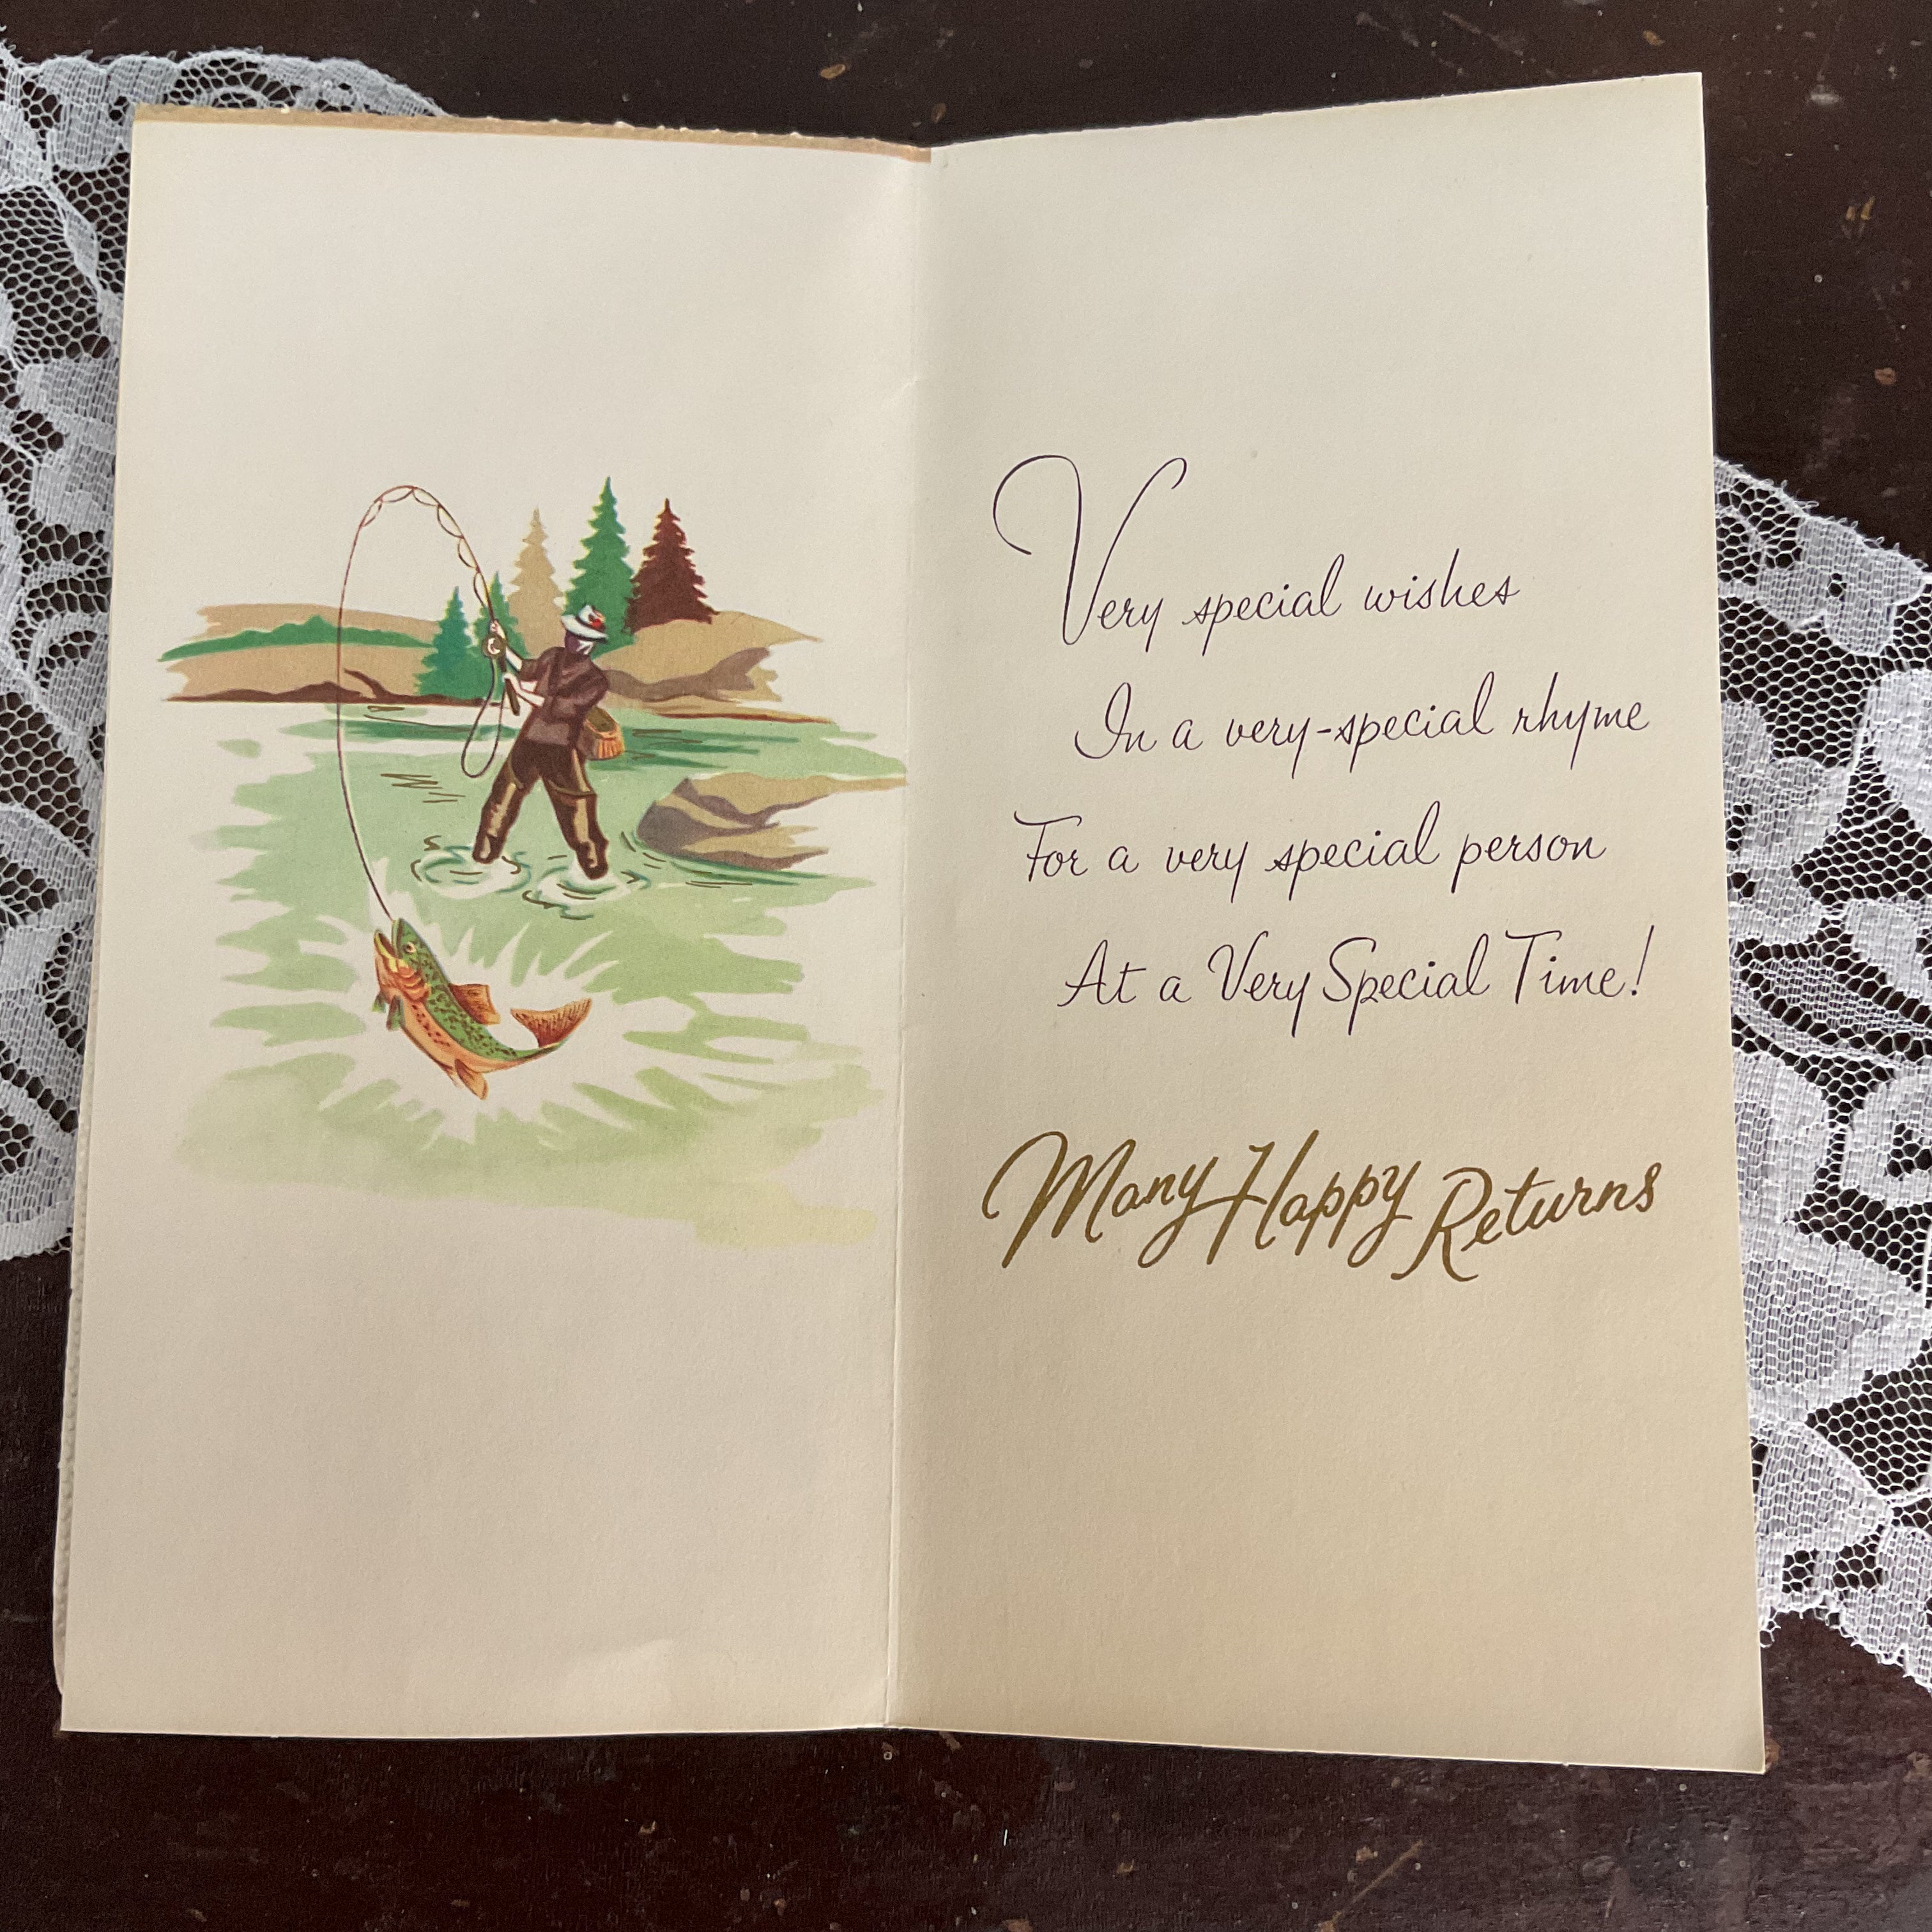 Very special wishes
In a very-special rhyme
For a very special person
At a Very Special Time!
Many Happy Returns